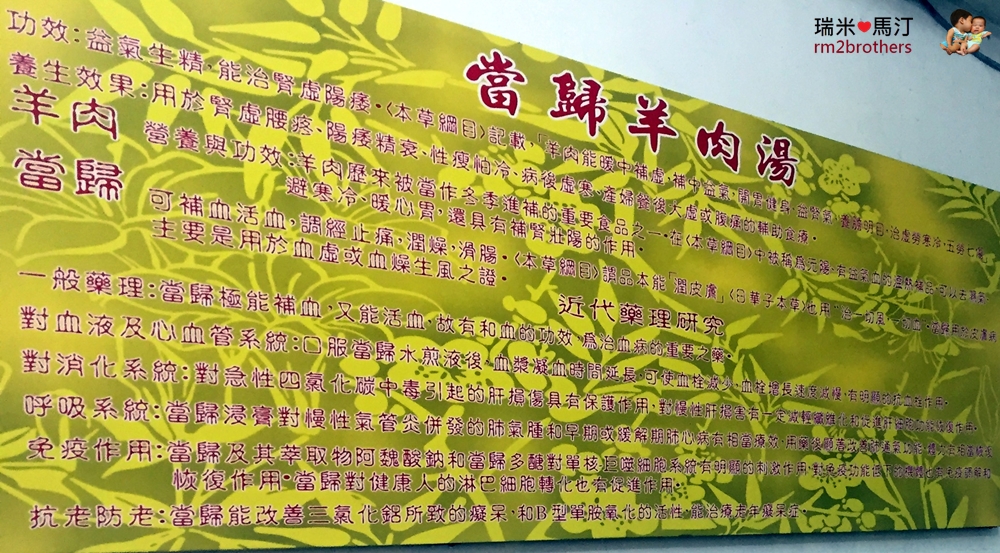 瑞米❤馬汀
rm2brothers
當歸羊肉湯
功效:益氣生精,能治腎虛陽痿。《本草綱目》記載,「羊肉能暖中補虛,補中益氣,開胃健身,益腎氣,養膽明目,治虛勞寒冷,五勞七傷
養生效果:用於腎虛腰疼、陽痿精衰、性瘦怕冷、病後虛寒、產婦產後大虛或腹痛的輔助食療。
羊肉
營養與功效:羊肉歷來被當作冬季進補的重要食品之一。在《本草綱目》中被稱為元陽、有益氣血的溫熱補品,可以去濕氣
避寒冷、暖心胃,還具有補腎壯陽的作用。
當歸
可補血活血,調經止痛,潤燥、滑腸。《本草綱目》謂品本能「潤皮膚」《日華子本草》也用「治一切風,一切血
主要是用於血虛或血燥生風之證。
近代藥理研究
一般藥理:當歸極能補血,又能活血,故有和血的功效,為治血病的重要之藥。
對血液及心血管系統:口服當歸水煎液後,血漿凝血時間延長,可使血栓減少,血栓增長速度減慢,有明顯的抗血栓作用。
對消化系統:對急性四氯化碳中毒引起的肝損傷具有保護作用,對慢性肝損害有一定減輕纖維化和促進肝細胞功能恢復作用。
呼吸系統:當歸浸膏對慢性氣管炎併發的肺氣腫和早期或緩解期肺心病有相當療效,用藥後顯著改善肺通氣功能
免疫作用:當歸及其萃取物阿魏酸鈉和當歸多醣對單核巨噬細胞系統有明顯的刺激作用,對免疫功能低下的機體也有免疫調節和
恢復作用。當歸對健康人的淋巴細胞轉化也有促進作用。
抗老防老:當歸能改善三氯化鋁所致的癡呆,和B型單胺氧化的活性,能治療老年癡呆症。